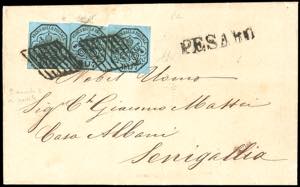 PESARO
Nobil Uomo
Sig. Cte. Giacomo Mattei
Casa Albani
Senigallia